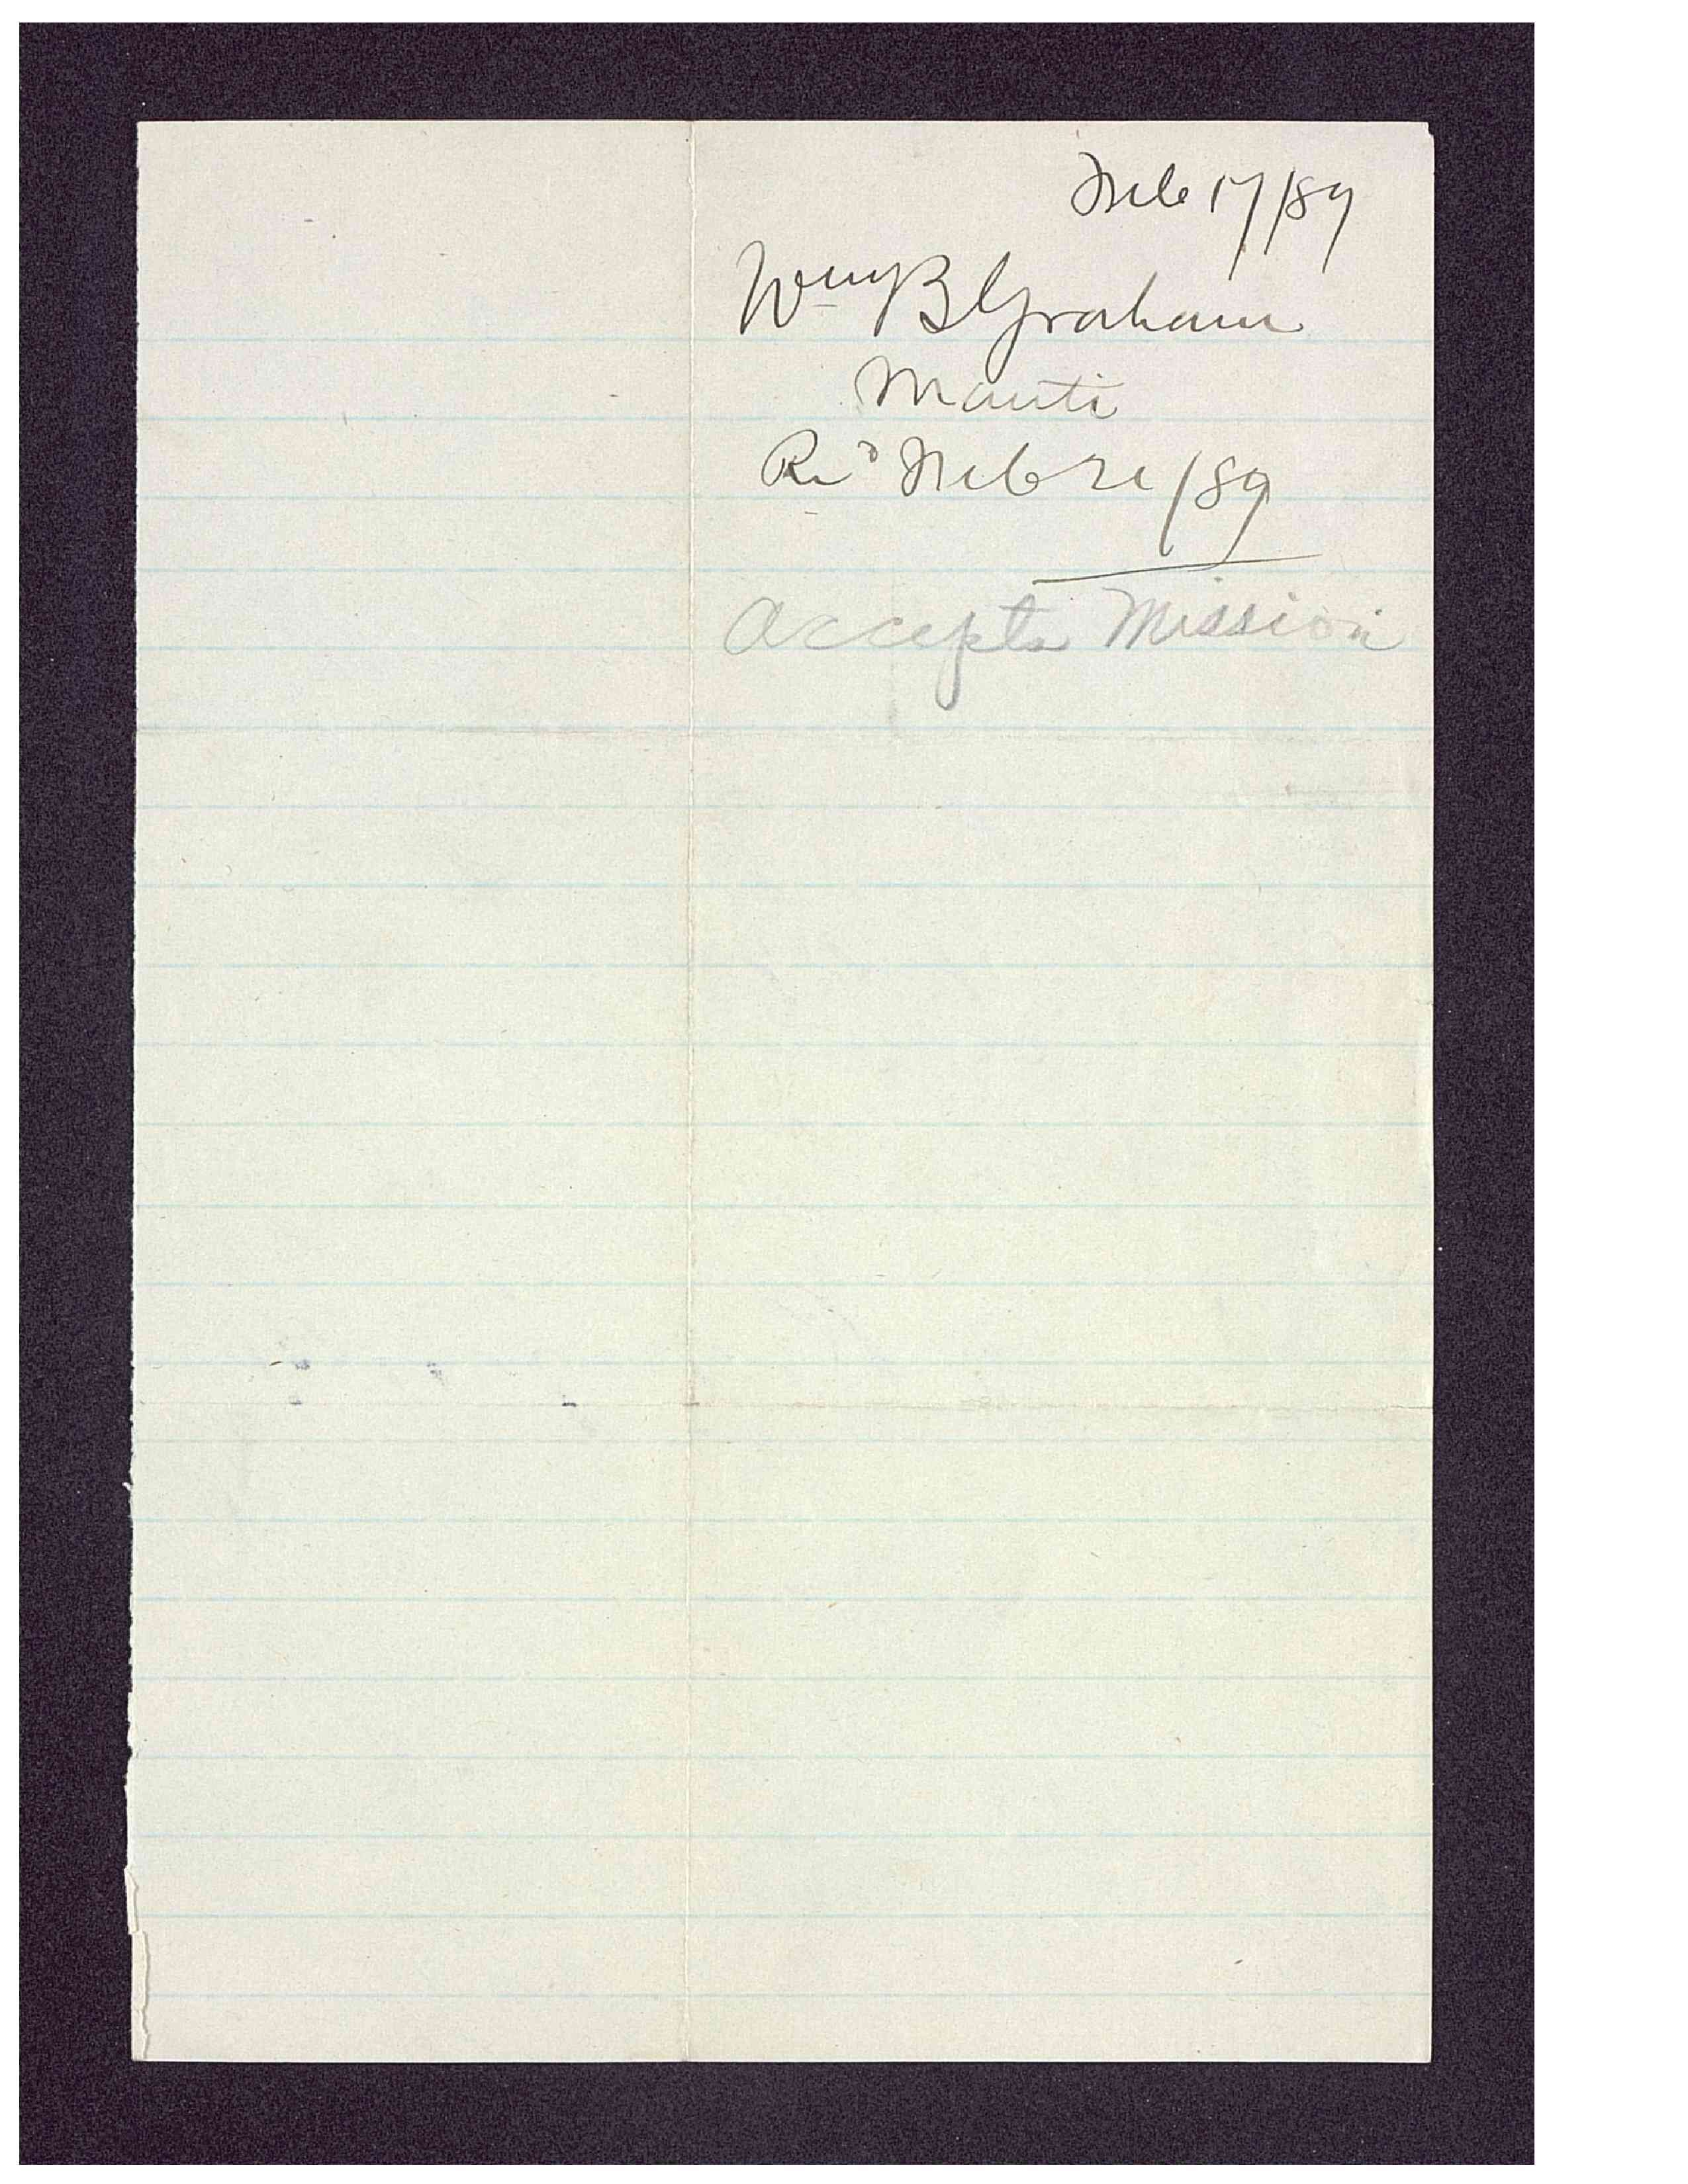 Feb 17/89
Wm B Graham
Manti
Recd Feb 21/89
Accepts Mission